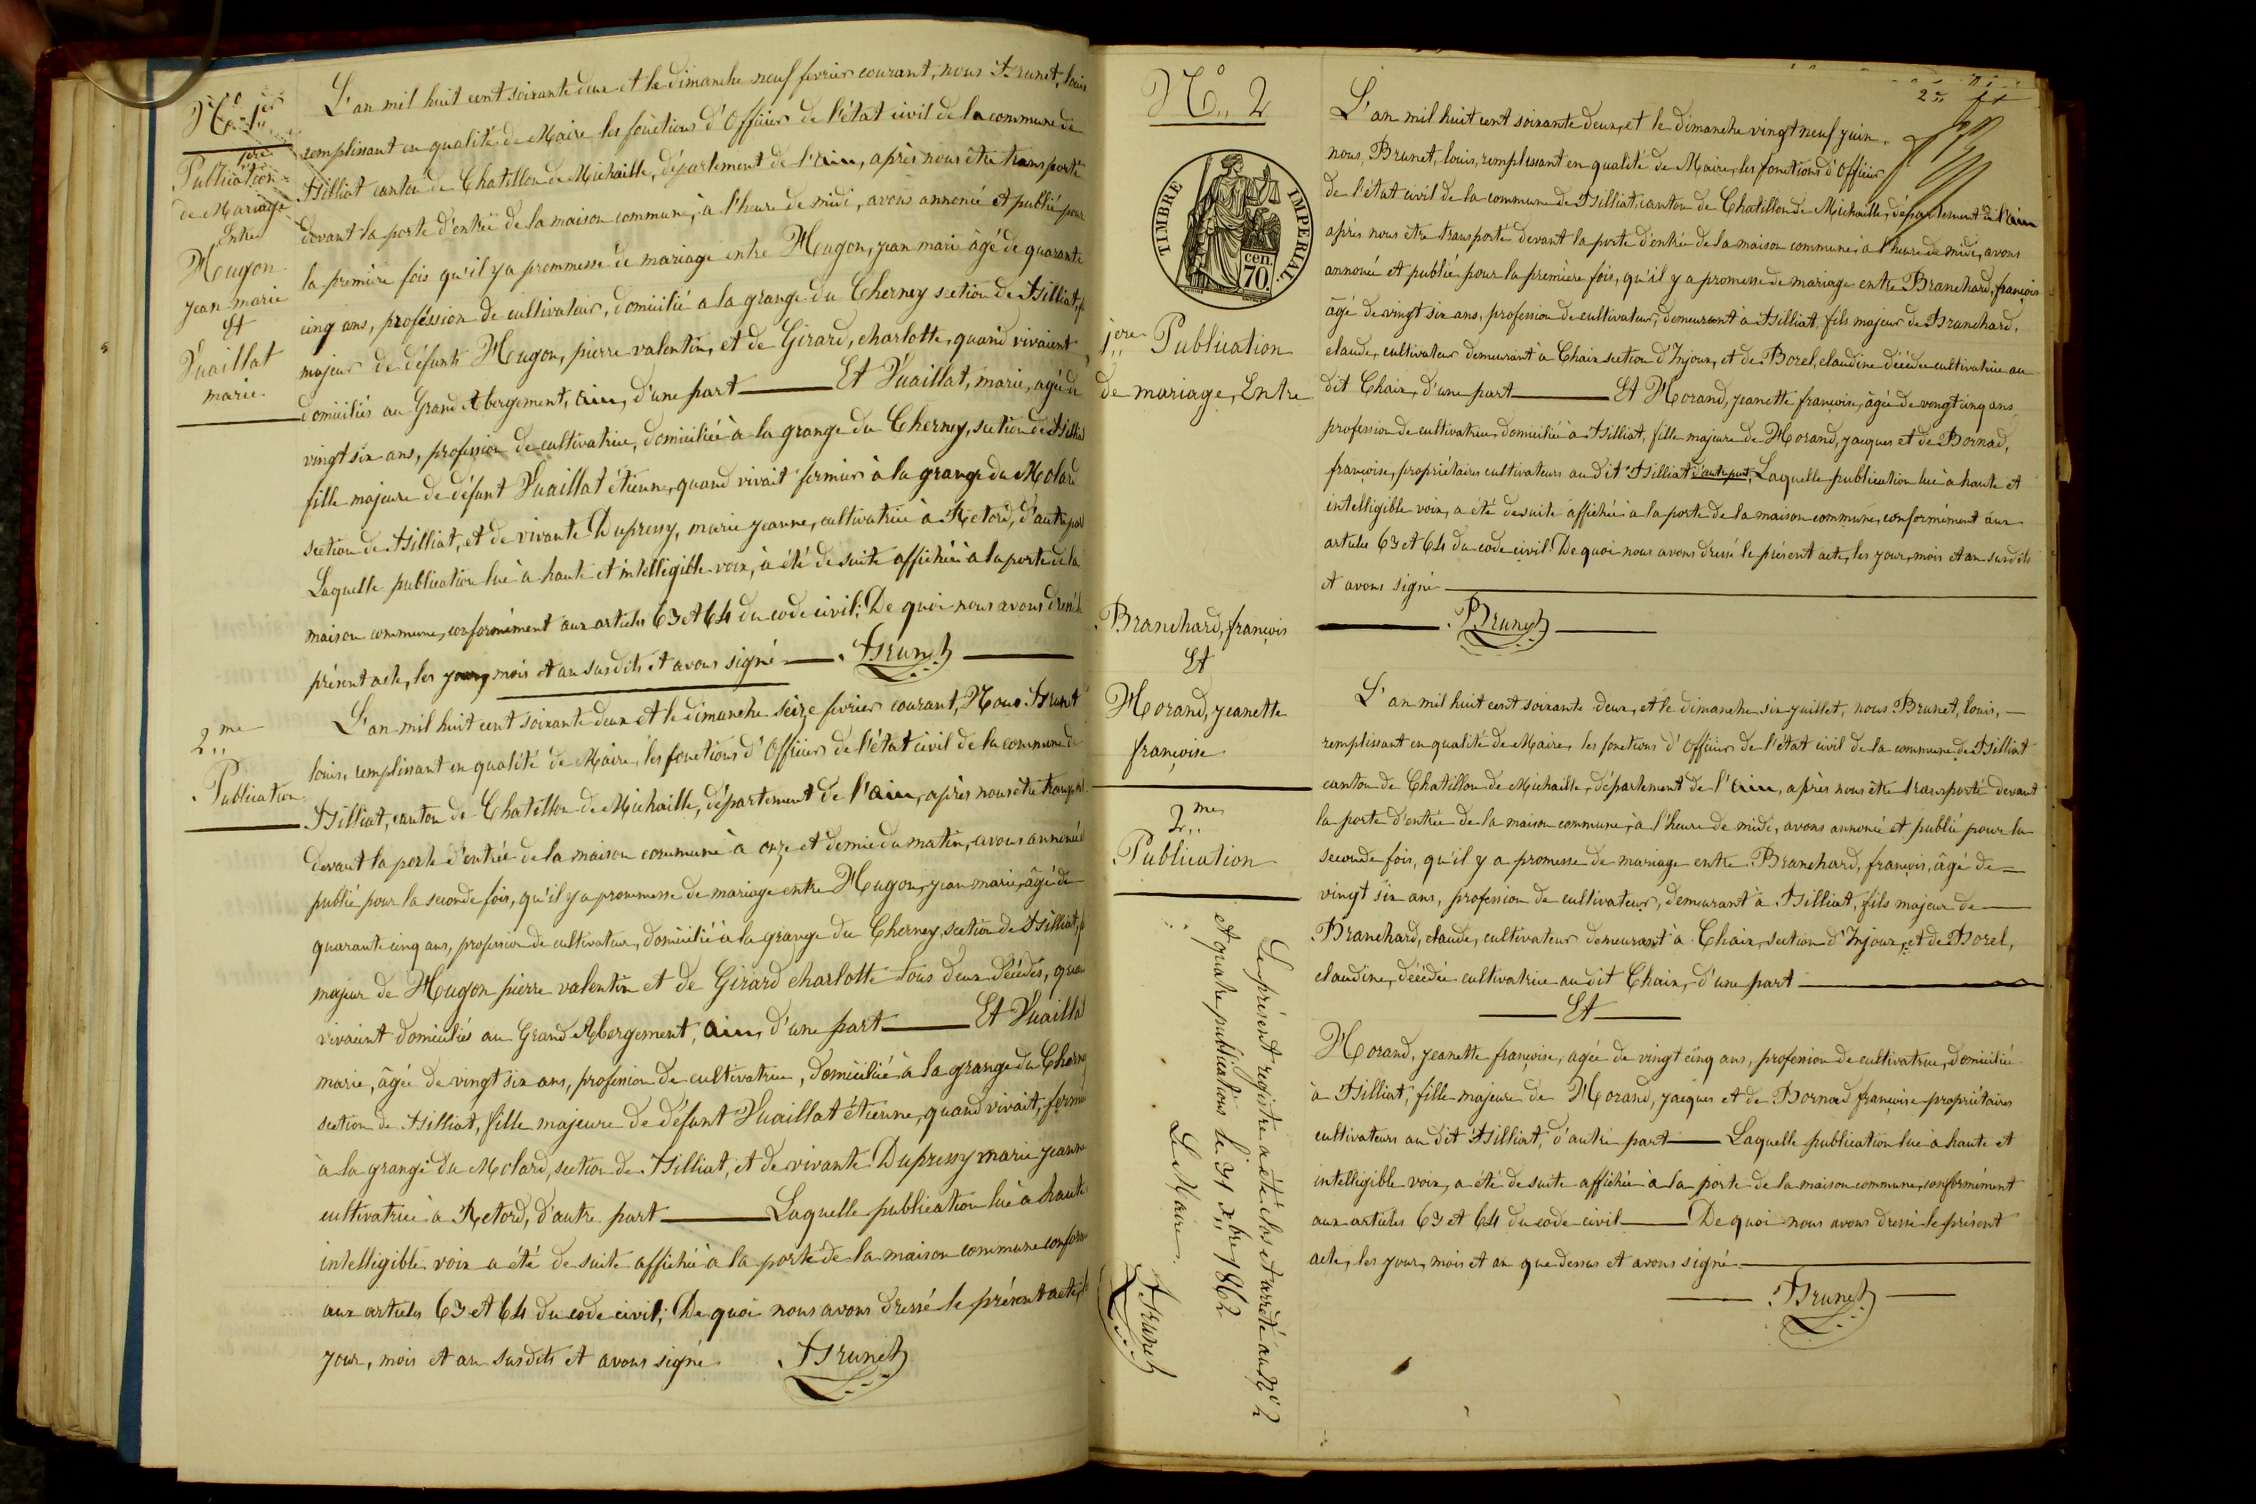 N.° 1er
1ère
Publication
de Mariage
Entre
Mugon
jean marie
Et
Vuaillat
marie
L'an mil huit cent soixante deux et le dimanche neuf fevrier courant, nous Brunet, louis
remplissant en qualité de Maire les fonctions d'Officier de l'état civil de la commune de
Billiat canton de Chatillon de Michaille, département de l'ain, après nous être transporté
devant la porte d'entrée de la maison commune, à l'heure de midi, avons annoncé et publié pour
la première fois qu'il y a prommesse de mariage entre Mugon, jean marie âgé de quarante
cinq ans, profession de cultivateur, domicilié a la grange du Cherney section de Billiat,
majeur de défunts Mugon, pierre valentin, et de Girard, charlotte, quand vivaient
domiciliés au Grand Abergement, ain, d'une part Et Vuaillat, marie, agée de
vingt six ans, profession de cultivatrice, domiciliée à la grange du Cherney, section de Billiat
fille majeure de défunt Vuaillat étienne, quand vivait fermier à la grange du Molard
section de Billiat, et de vivante Dupressy, marie jeanne, cultivatrice à Retord, d'autre part
Laquelle publication lue à haute et intelligible voix, à été de suite affichée à la porte de la
maison commune, conformément aux articles 63 et 64 du code civil; De quoi nous avons dressé le
présent acte, les jour, mois et an susdits et avons signé Brunet
2.me
Publication
L'an mil huit cent soixante deux et le dimanche seize fevrier courant, Nous Brunet
louis, remplissant en qualité de Maire, les fonctions d'Officier de l'état civil de la commune de
Billiat, canton de Chatillon de Michaille, département de l'ain, après nous être transporté
devant la porte d'entrée de la maison commune à onze et demie du matin, avons annoncé
publié pour la seconde fois, qu'il y a prommesse de mariage entre Mugon, jean marie, âgé de
quarante cinq ans, profession de cultivateur, domicilié à la grange du Cherney, section de Billiat,
majeur de Mugon pierre valentin et de Girard charlotte tous deux décédés, quand
vivaient domiciliés au Grand Abergement, ain, d'une part Et Vuaillat
marie, âgée de vingt six ans, profession de cultivatrice, domiciliée à la grange du Cherney
section de Billiat, fille majeure de défunt Vuaillat étienne, quand vivait, fermier
à la grange du Molard, section de Billiat, et de vivante Dupressy marie jeanne
cultivatrice à Retord, d'autre part Laquelle publication lue à haute
intelligible voix a été de suite affichée à la porte de la maison commune conform
aux articles 63 et 64 du code civil; De quoi nous avons dressé le présent acte,
jour, mois et an susdits et avons signé Brunet
N.° 2
TIMBRE IMPERIAL.
cen.
70.
1ère Publication
de mariage, Entre
Branchard, françois
Et
Morand, jeanette
françoise
L'an mil huit cent soixante deux, et le dimanche vingt neuf juin
nous, Brunet, louis, remplissant en qualité de Maire, les fonctions d'Officier
de l'état civil de la commune de Billiat, canton de Chatillon de Michaille, département de l'ain
après nous être transporté devant la porte d'entrée de la maison commune, à l'heure de midi, avons
annoncé et publié pour la première fois, qu'il y a promesse de mariage entre Branchard, françois
âgé de vingt six ans, profession de cultivateur, demeurant à Billiat, fils majeur de Branchard,
claude, cultivateur demeurant à Chaix section d'Injoux, et de Borel, claudine décédée cultivatrice au
dit Chaix, d'une part Et Morand, jeanette françoise, âgée de vingt cinq ans
profession de cultivatrice, domiciliée à Billiat, fille majeure de Morand, jacques et de Bornad,
françoise, propriétaires cultivateurs au dit Billiat d'autre part, Laquelle publication lue à haute et
intelligible voix, a été de suite affichée à la porte de la maison commune, conformément aux
articles 63 et 64 du code civil. De quoi nous avons dressé le présent acte, les jour, mois et an susdits
et avons signé
Brunet
2.me
Publication
L'an mil huit cent soixante deux, et le dimanche six juillet, nous Brunet, louis,
remplissant en qualité de Maire, les fonctions d'Officier de l'état civil de la commune de Billiat
canton de Chatillon de Michaille, département de l'ain, après nous être transporté devant
la porte d'entrée de la maison commune, à l'heure de midi, avons annoncé et publié pour la
seconde fois, qu'il y a promesse de mariage entre Branchard, françois, âgé de
vingt six ans, profession de cultivateur, demeurant à Billiat, fils majeur de
Branchard, claude, cultivateur demeurant à Chaix, section d'Injoux, et de Borel,
claudine, décédée cultivatrice au dit Chaix, d'une part
Et
Morand, jeanette françoise, agée de vingt cinq ans, profession de cultivatrice, domiciliée
à Billiat, fille majeure de Morand, jacques et de Bornad françoise propriétaires
cultivateurs au dit Billiat, d'autre part Laquelle publication lue à haute et
intelligible voix, a été de suite affichée à la porte de la maison commune, conformément
aux articles 63 et 64 du code civil De quoi nous avons dressé le présent
acte, les jour, mois et an que dessus et avons signé
Brunet
Le présent registre a été clos et arrêté au N° 2
et quatre publications le 31 Xbre 1862
Le Maire.
Brunet